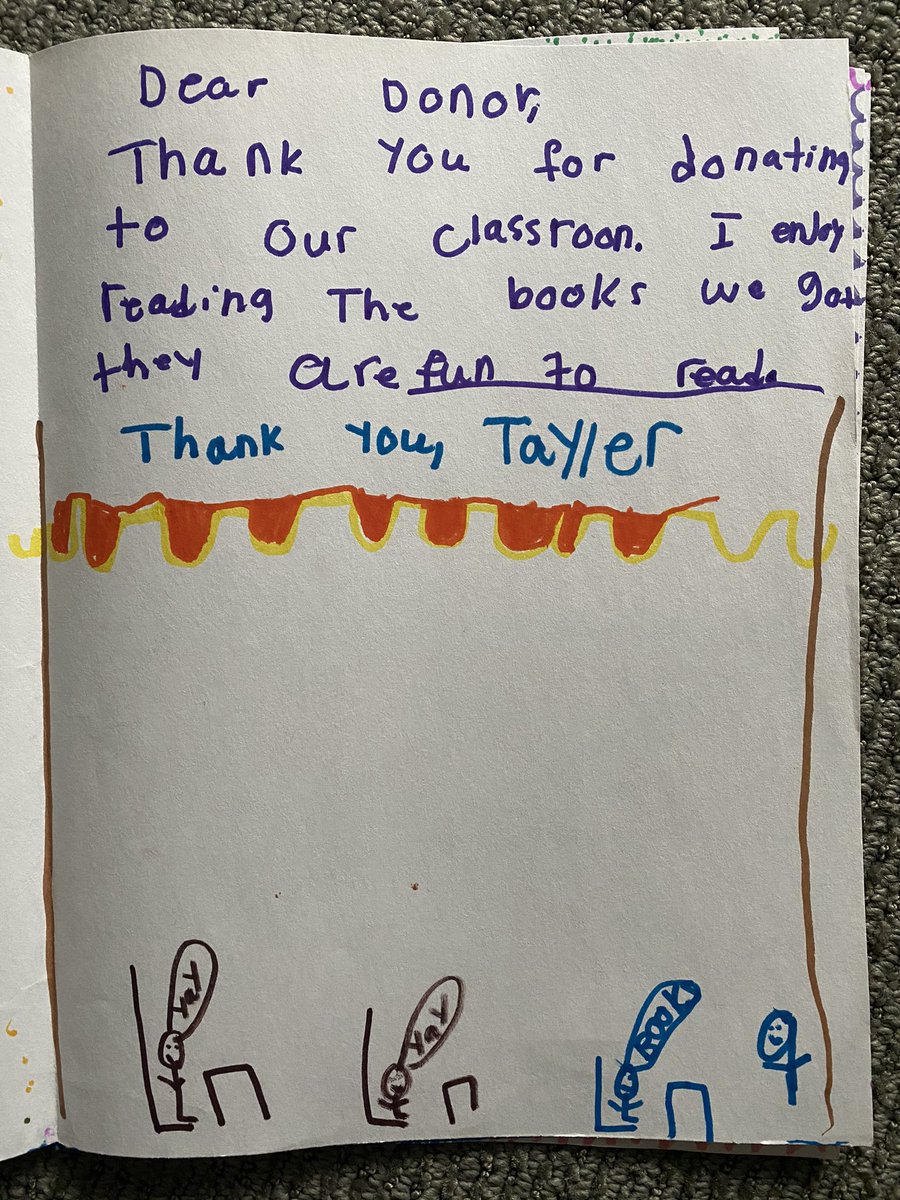 Dear Donor,
Thank you for donating
to our classroon. I enjoy
reading The books we got
they are fun to read.
Thank you, Tayller
YaY
YaY
BOOK